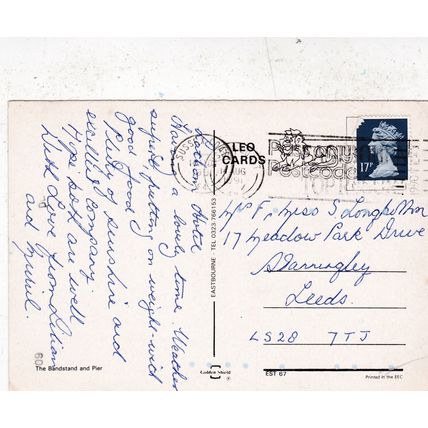 Lathom Hotel
Having a lovely time. Weather
superb putting on weight with
good food
Plenty of sunshine and
excellent company
Hope both are well
Much love from Lilian
and Muriel.
The Bandstand and Pier
LEO
CARDS
EASTBOURNE · TEL 0323 766153
Golden Shield
SUSSEX
AUG
17P
Miss S
17 Meadow Park Drive
Stanningley
Leeds.
LS28 7TJ
EST 67
Printed in the EEC